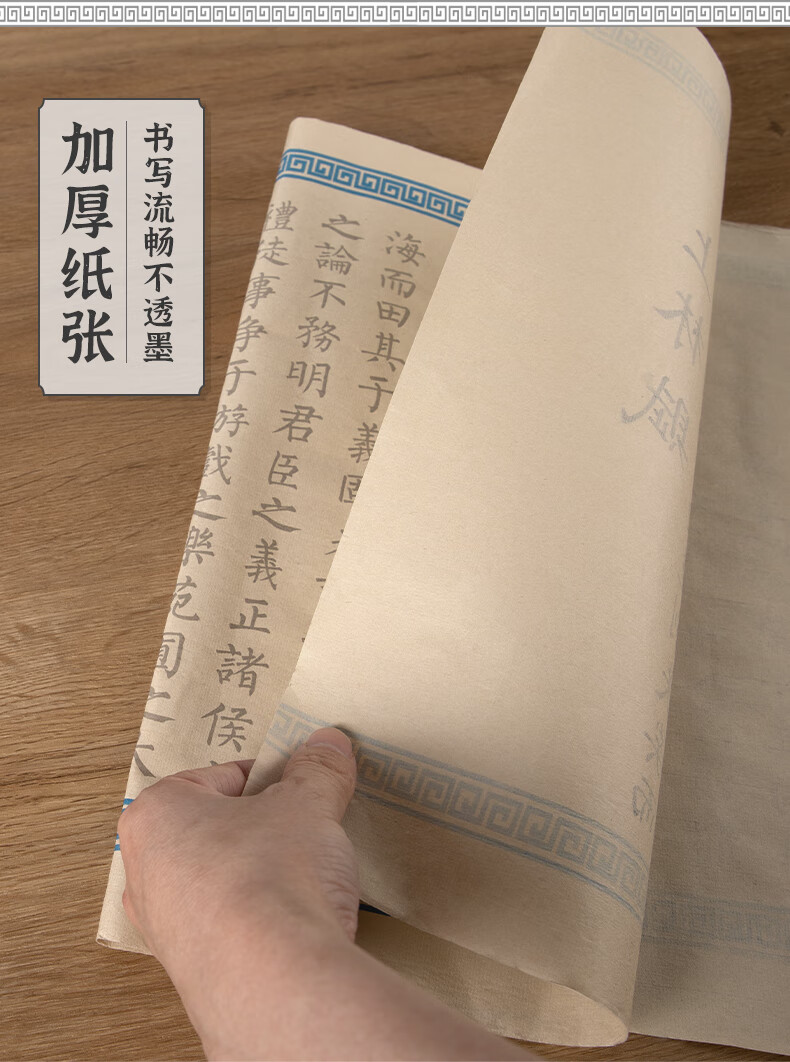 加厚纸张
书写流畅不透墨
海而田其于義固
之論不務明君臣之義正諸侯
禮徒事争于游戲之樂苑囿之大
上林賦